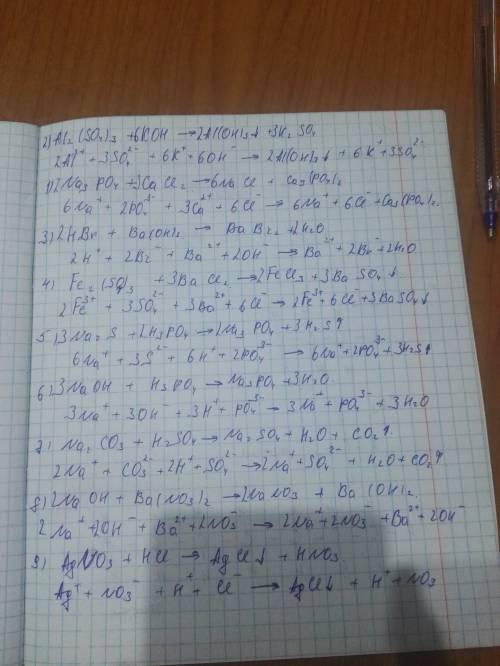 2) Al₂(SO₄)₃ + 6KOH → 2Al(OH)₃↓ + 3K₂SO₄
2Al³⁺ + 3SO₄²⁻ + 6K⁺ + 6OH⁻ → 2Al(OH)₃↓ + 6K⁺ + 3SO₄²⁻
1) 2Na₃PO₄ + 3CaCl₂ → 6NaCl + Ca₃(PO₄)₂
6Na⁺ + 2PO₄³⁻ + 3Ca²⁺ + 6Cl⁻ → 6Na⁺ + 6Cl⁻ + Ca₃(PO₄)₂
3) 2HBr + Ba(OH)₂ → BaBr₂ + 2H₂O
2H⁺ + 2Br⁻ + Ba²⁺ + 2OH⁻ → Ba²⁺ + 2Br⁻ + 2H₂O
4) Fe₂(SO₄)₃ + 3BaCl₂ → 2FeCl₃ + 3BaSO₄↓
2Fe³⁺ + 3SO₄²⁻ + 3Ba²⁺ + 6Cl⁻ → 2Fe³⁺ + 6Cl⁻ + 3BaSO₄↓
5) 3Na₂S + 2H₃PO₄ → 2Na₃PO₄ + 3H₂S↑
6Na⁺ + 3S²⁻ + 6H⁺ + 2PO₄³⁻ → 6Na⁺ + 2PO₄³⁻ + 3H₂S↑
6) 3NaOH + H₃PO₄ → Na₃PO₄ + 3H₂O
3Na⁺ + 3OH⁻ + 3H⁺ + PO₄³⁻ → 3Na⁺ + PO₄³⁻ + 3H₂O
7) Na₂CO₃ + H₂SO₄ → Na₂SO₄ + H₂O + CO₂↑
2Na⁺ + CO₃²⁻ + 2H⁺ + SO₄²⁻ → 2Na⁺ + SO₄²⁻ + H₂O + CO₂↑
8) 2NaOH + Ba(NO₃)₂ → 2NaNO₃ + Ba(OH)₂
2Na⁺ + 2OH⁻ + Ba²⁺ + 2NO₃⁻ → 2Na⁺ + 2NO₃⁻ + Ba²⁺ + 2OH⁻
9) AgNO₃ + HCl → AgCl↓ + HNO₃
Ag⁺ + NO₃⁻ + H⁺ + Cl⁻ → AgCl↓ + H⁺ + NO₃